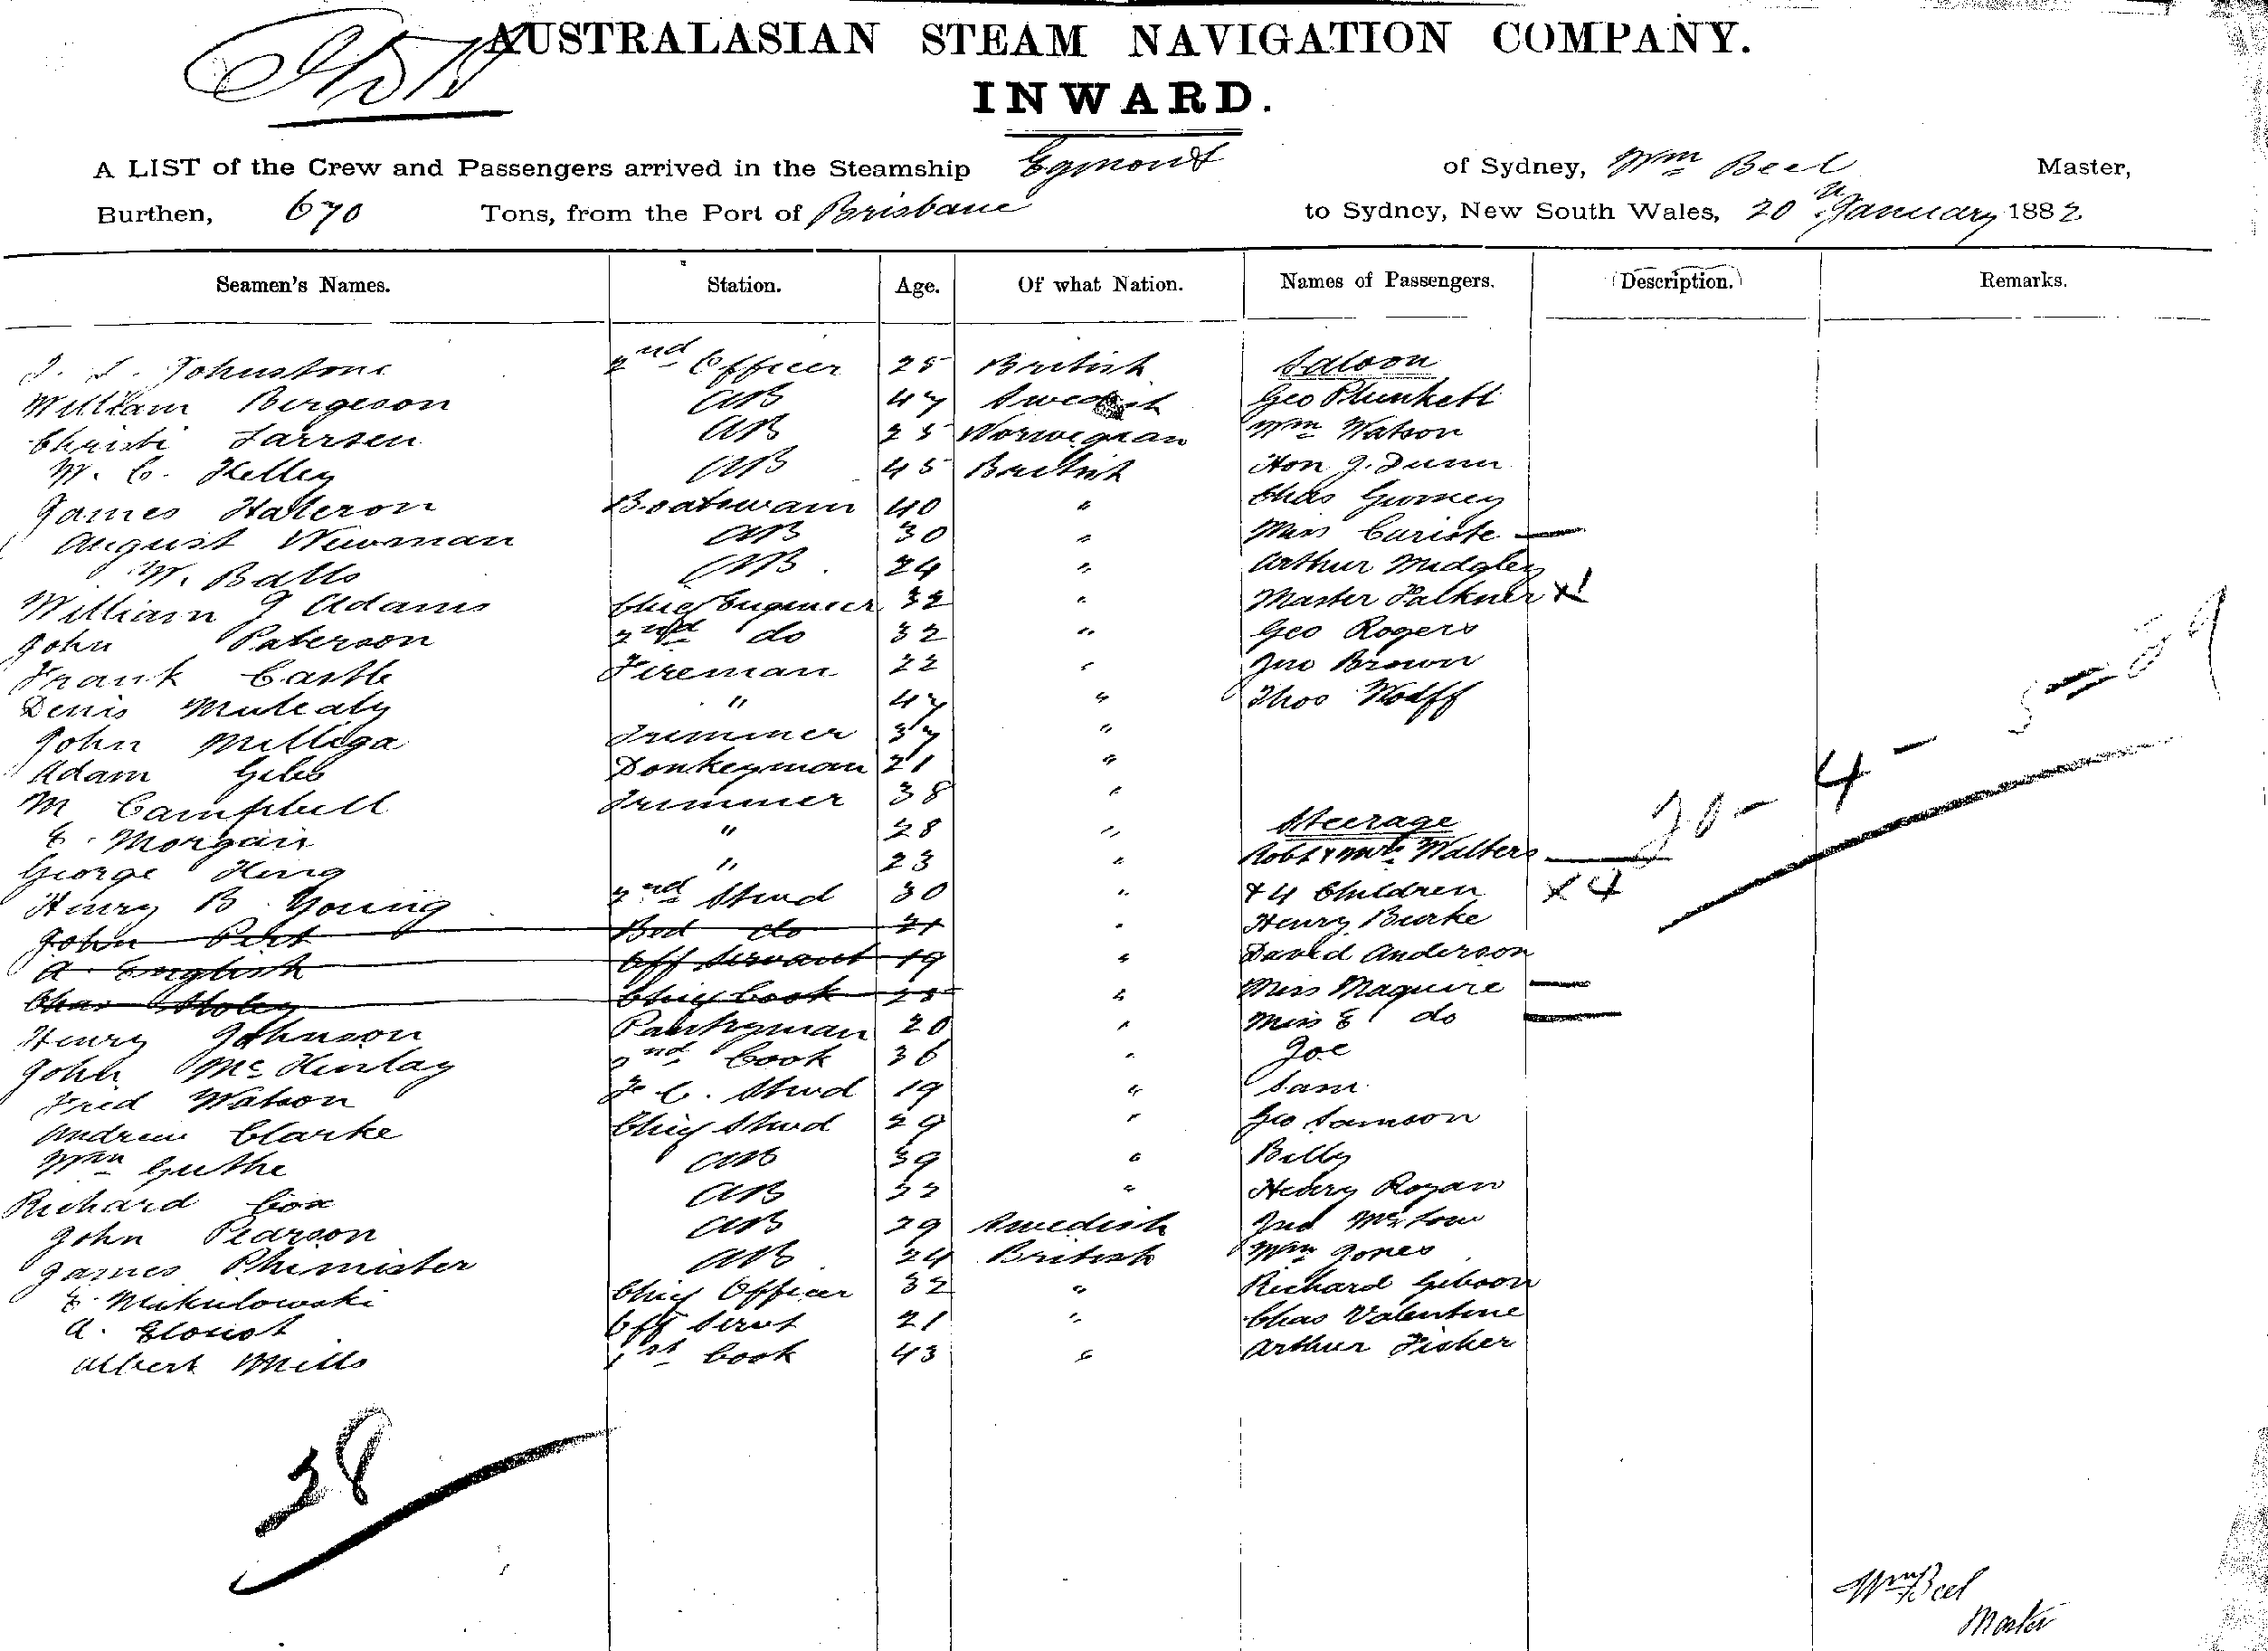 AUSTRALASIAN STEAM NAVIGATION COMPANY.
INWARD.
A LIST of the Crew and Passengers arrived in the Steamship Egmont of Sydney, Wm Beel Master,
Burthen, 670 Tons, from the Port of Brisbane to Sydney, New South Wales, 20th January 1882
Seamen's Names. Station. Age. Of what Nation. Names of Passengers. Description. Remarks.
Johnstone 2nd Officer 25 British Saloon
William Bergeson AB 47 Swedish Geo Plunkett
Christi Larrsen AB 25 Norwegian Wm Watson
M. C. Kelley AB 45 British Hon J. Dunn
James Halcron Boatswain 40 " Chas
August Newman AB 30 " Miss —
W. Balls AB 24 " Arthur Midgley
William J Adams Chief Engineer 32 " Master Falkner x1
John Paterson 2nd do 32 " Geo Rogers
Frank Castle Fireman 22 " Jno Brown
Denis " 47 " Thos Wolff
John Milliga Trimmer 37 "
Adam Giles Donkeyman 21 "
M Campbell Trimmer 38 "
E. Morgan " 28 " Steerage
George King " 23 " Robt & Mrs Walters
Henry B Young 2nd Stwd 30 " & 4 Children x 4
John Pert Bed do 21 " Henry Burke
A. English Off Servant 19 " David Anderson
Chas Chief Cook 25 " Miss Maguire —
Henry Johnson Pantryman 20 " Miss E do —
John McKinlay 2nd Cook 36 " Joe
Fred Watson F. C. Stwd 19 " Sam
Andrew Clarke Chief Stwd 29 " Geo Samson
Wm Guthe AB 39 " Billy
Richard Cox AB 33 " Henry Rogan
John Pearson AB 29 Swedish Jno
James Phimister AB 24 British Wm Jones
E. Mukulowski Chief Officer 32 " Richard Gibson
A. Off Servt 21 " Chas Valentine
Albert Mills 1st Cook 43 " Arthur Fisher
20 - 4 - 5 =
Wm Beel
Master